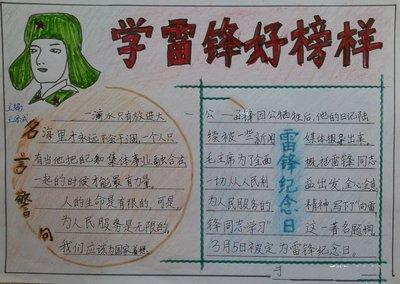 学雷锋好榜样
名言警句
一滴水只有放进大
海里才永远不会干涸,一个人只
有当他把自己和集体事业融合在
一起的时候才能最有力量。
人的生命是有限的,可是,
为人民服务是无限的。
我们应该为国家着想。
雷锋纪念日
雷锋因公牺牲后,他的日记陆
续被一些新闻媒体报导出来。
毛主席为了全面概括雷锋同志
一切从人民利益出发,全心全意
为人民服务的精神,写下了"向雷
锋同志学习"这一著名题词,
3月5日被定为雷锋纪念日。